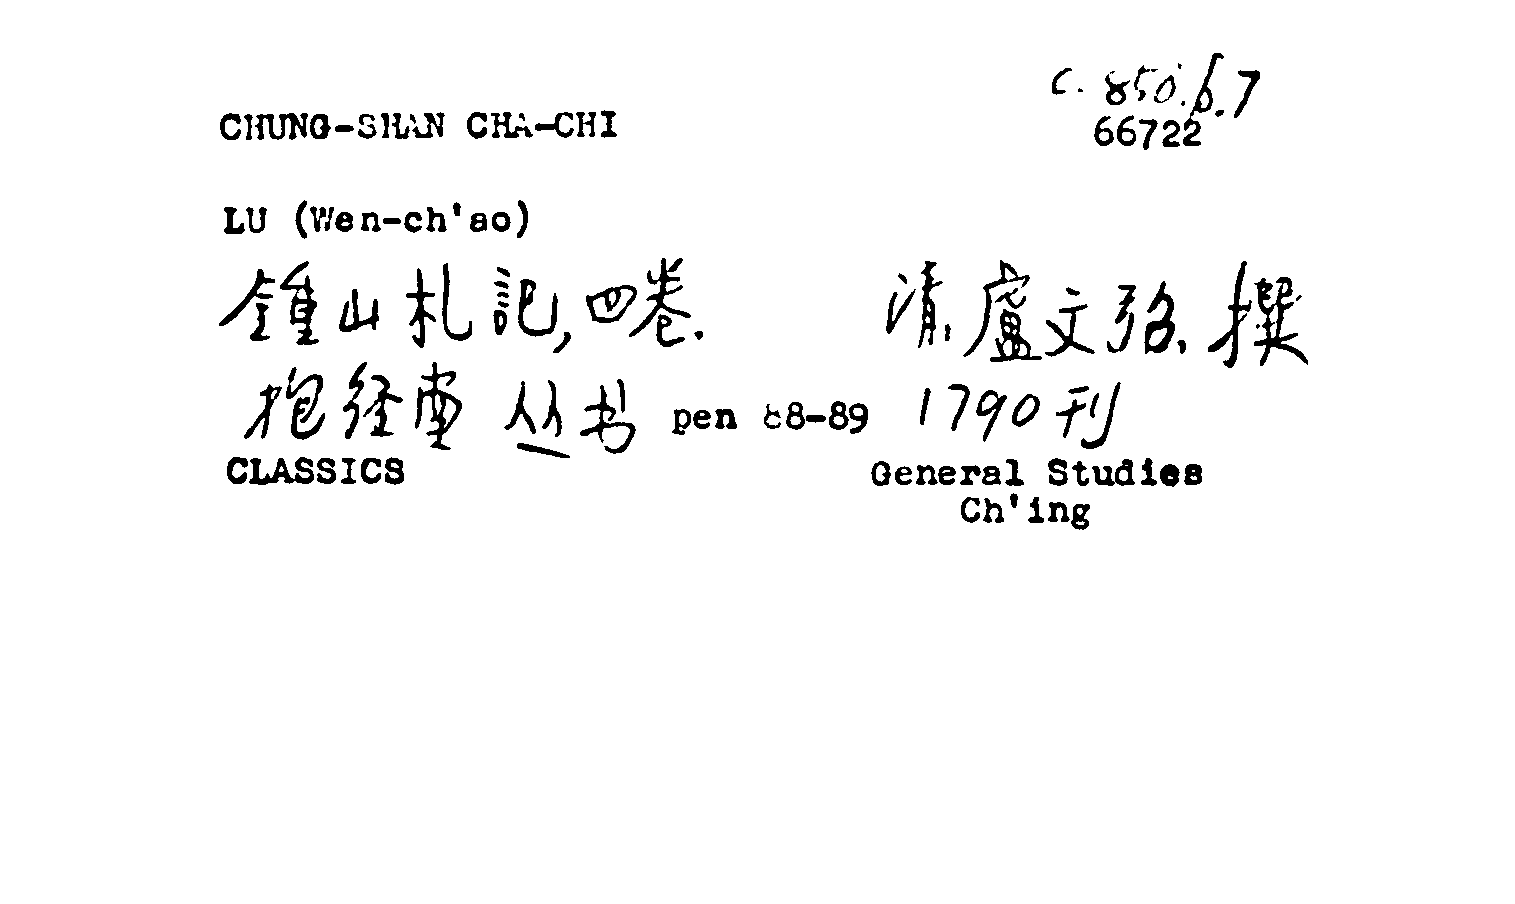 C. 850.6.7
CHUNG-SHAN CHA-CHI 66722
LU (Wen-ch'ao)
鍾山札記, 四卷. 清, 盧文弨, 撰
抱经堂 丛书 pen 88-89 1790 刊
CLASSICS General Studies
Ch'ing